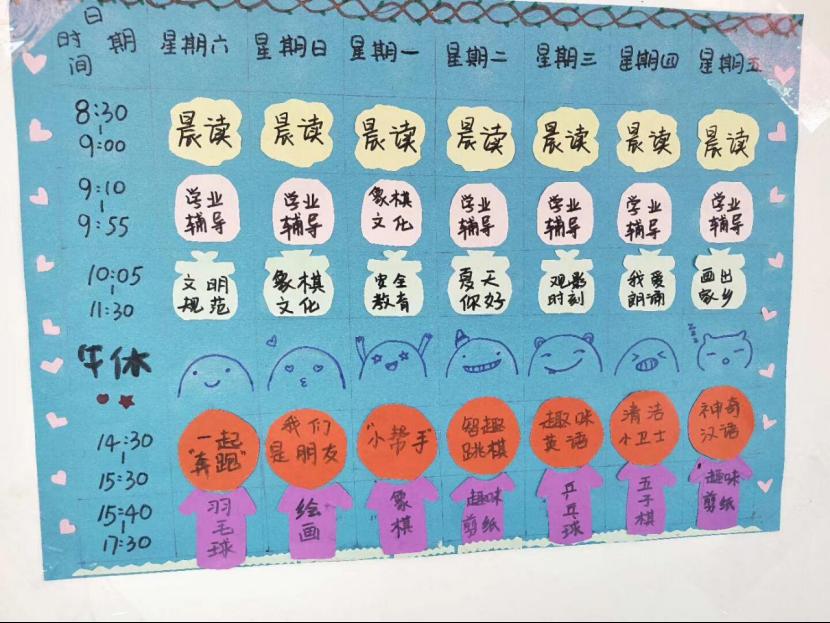 日期 时间 星期六 星期日 星期一 星期二 星期三 星期四 星期五
8:30-9:00 晨读 晨读 晨读 晨读 晨读 晨读 晨读
9:10-9:55 学业辅导 学业辅导 象棋文化 学业辅导 学业辅导 学业辅导 学业辅导
10:05-11:30 文明规范 象棋文化 安全教育 夏天你好 观影时刻 我爱朗诵 画出家乡
午休 zzz
14:30-15:30 一起"奔跑" 我们是朋友 "小帮手" 智趣跳棋 趣味英语 清洁小卫士 神奇汉语
15:40-17:30 羽毛球 绘画 象棋 趣味剪纸 乒乓球 五子棋 趣味剪纸